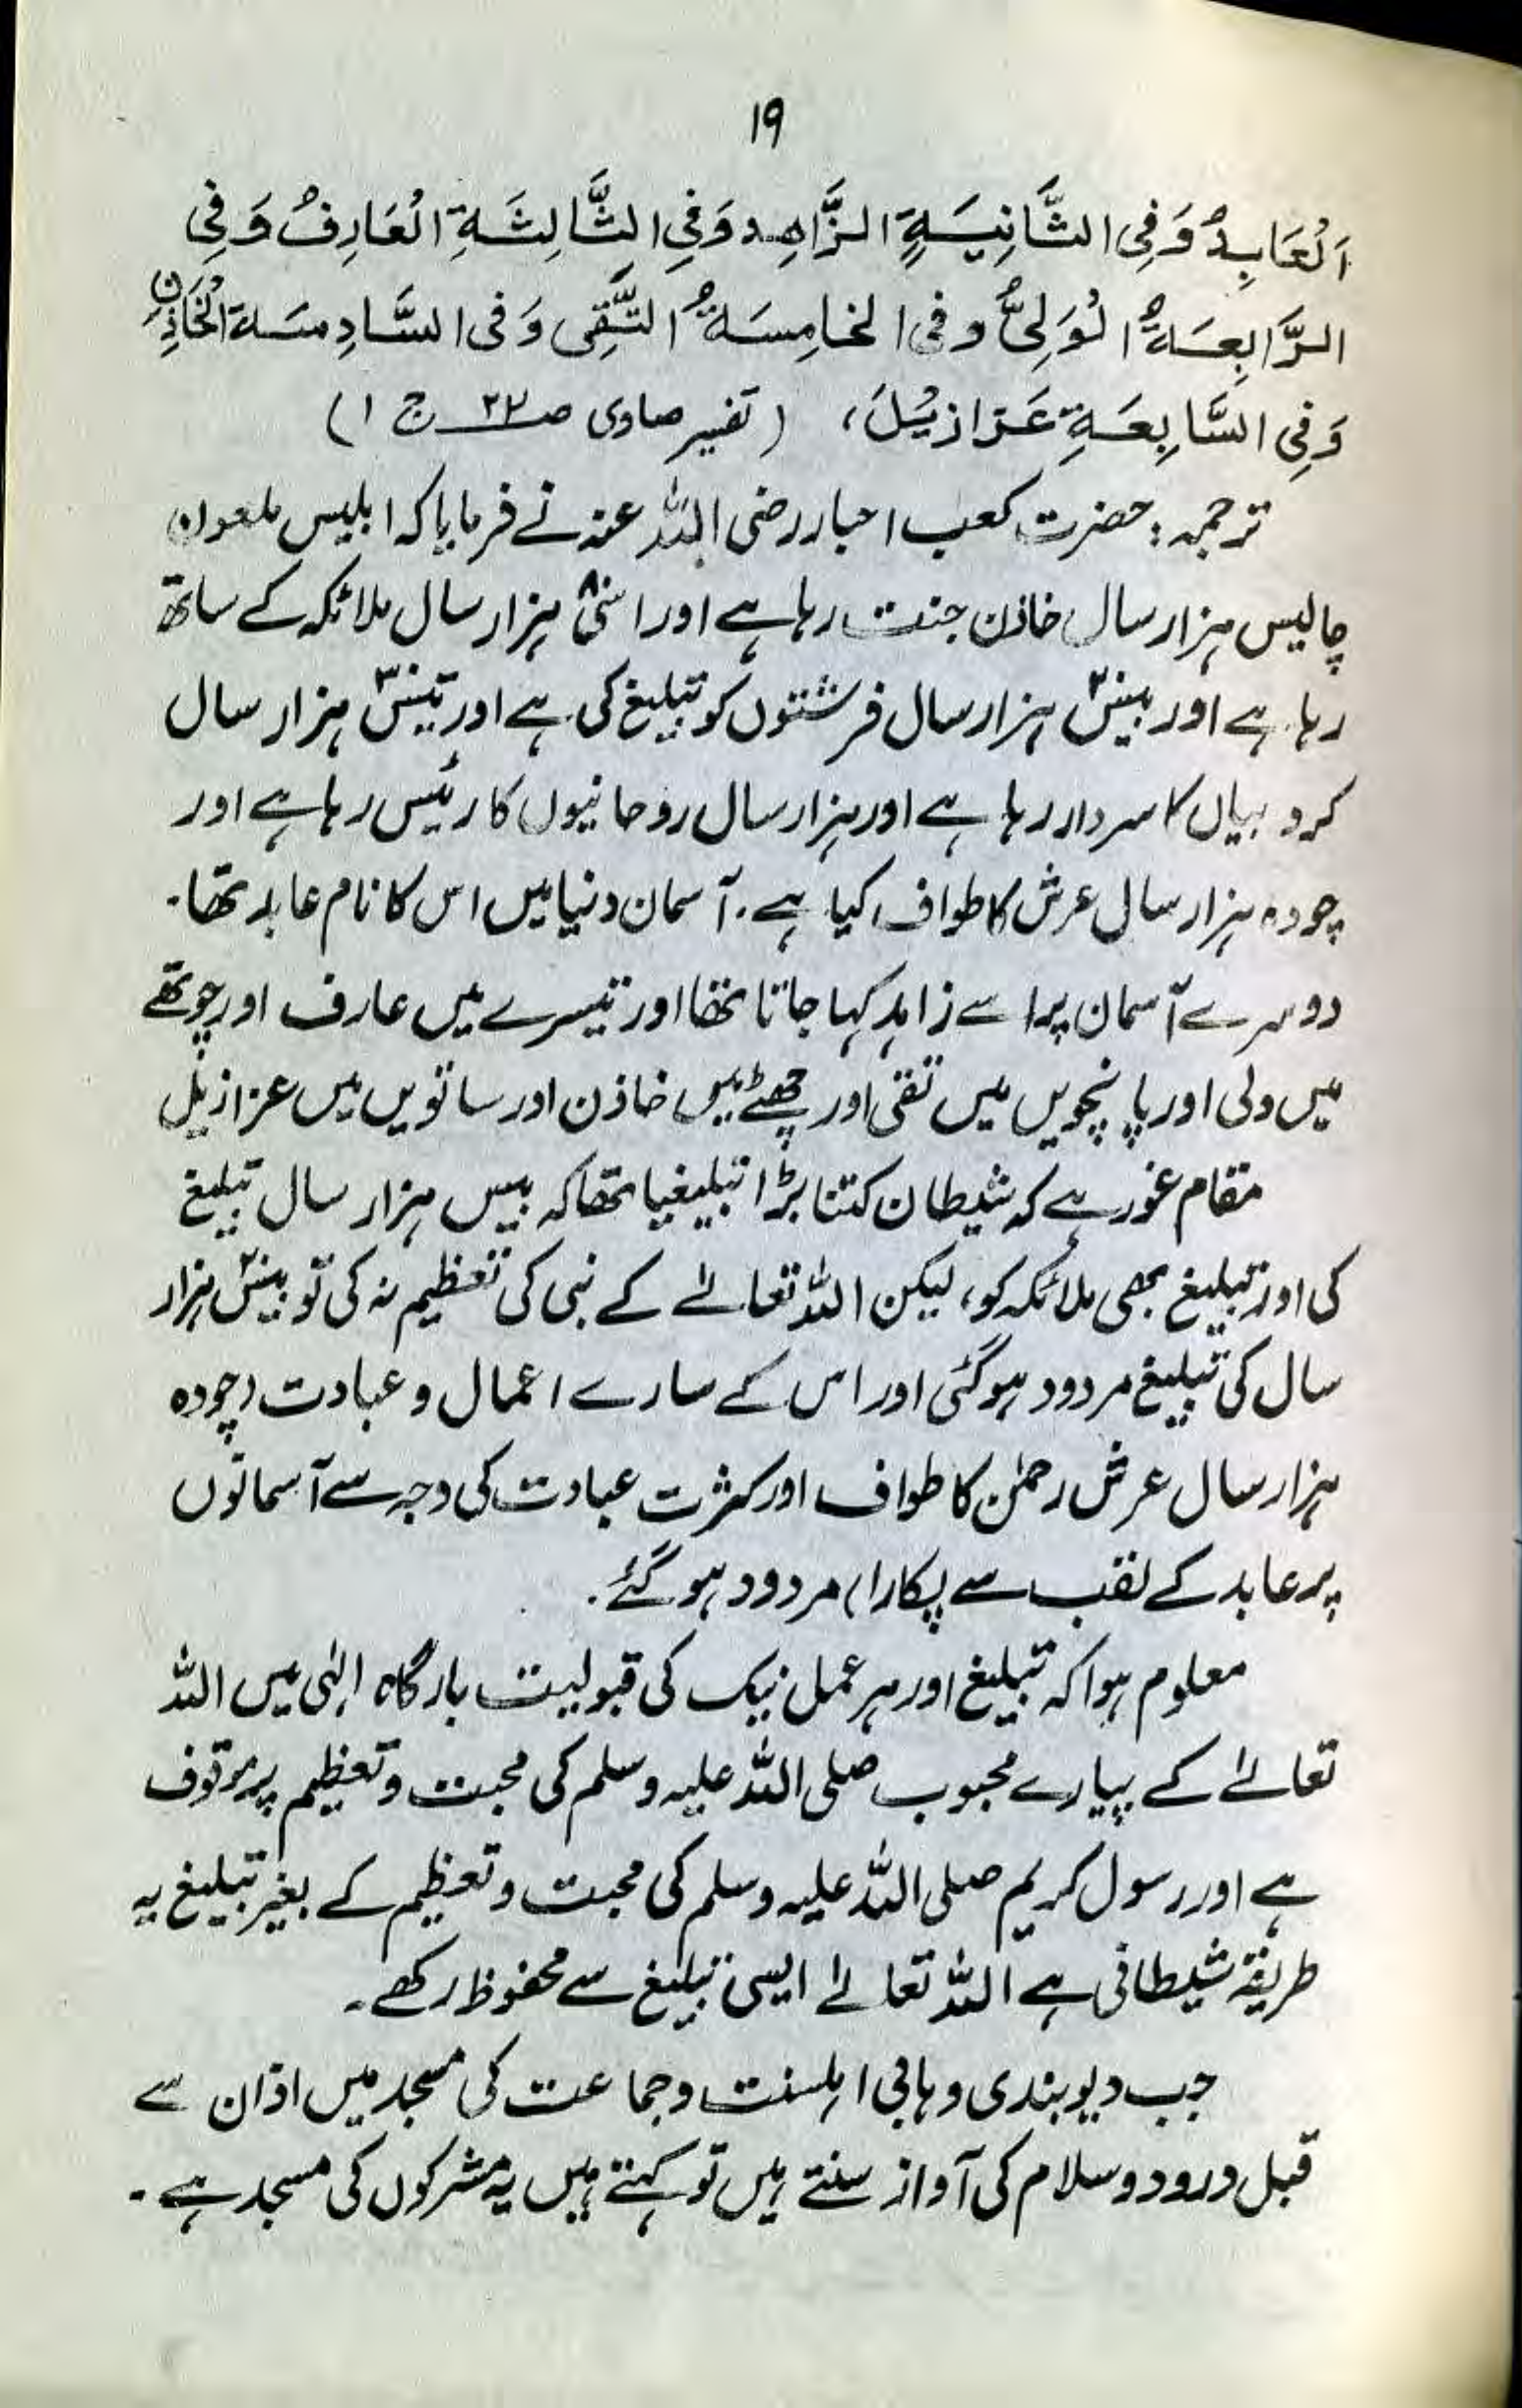 ۱۹
اَلْعَابِدُ وَفِی الثَّانِیَةِ الزَّاهِد وَفِی الثَّالِثَةِ الْعَارِفُ وَفِی
الرَّابِعَةُ الْوَلِیُّ وفی الخامِسَةُ التَّقِی وَفی السَّادِسَة الْخَاذِنِ
وَفِی السَّابِعَةِ عَزازِیْلَ، (تفسیر صاوی صـ۲۲ ج ۱)
ترجمہ: حضرت کعب احبار رضی اللہ عنہ نے فرمایا کہ ابلیس ملعون
چالیس ہزار سال خاذن جنت رہا ہے اور اسّی۸۰ ہزار سال ملائکہ کے ساتھ
رہا ہے اور بیس۲۰ ہزار سال فرشتوں کو تبلیغ کی ہے اور تیس۳۰ ہزار سال
کرو بیاں کا سردار رہا ہے اور ہزار سال روحانیوں کا رئیس رہا ہے اور
چودہ ہزار سال عرش کا طواف کیا ہے۔ آسمان دنیا میں اس کا نام عابد تھا۔
دوسرے آسمان پر اسے زاہد کہا جاتا تھا اور تیسرے میں عارف اور چوتھے
میں ولی اور پانچویں میں تقی اور چھٹے میں خاذن اور ساتویں میں عزازیل
مقام غور ہے کہ شیطان کتنا بڑا تبلیغیا تھا کہ بیس ہزار سال تبلیغ
کی اور تبلیغ بھی ملائکہ کو، لیکن اللہ تعالےٰ کے نبی کی تعظیم نہ کی تو بیس۲۰ ہزار
سال کی تبلیغ مردود ہوگئی اور اس کے سارے اعمال و عبادت (چودہ
ہزار سال عرش رحمٰن کا طواف اور کثرت عبادت کی وجہ سے آسمانوں
پر عابد کے لقب سے پکارا) مردود ہو گئے۔
معلوم ہوا کہ تبلیغ اور ہر عمل نیک کی قبولیت بارگاہ الٰہی میں اللہ
تعالےٰ کے پیارے محبوب صلی اللہ علیہ وسلم کی محبت و تعظیم پر موقوف
ہے اور رسول کریم صلی اللہ علیہ وسلم کی محبت و تعظیم کے بغیر تبلیغ یہ
طریقۂ شیطانی ہے اللہ تعالےٰ ایسی تبلیغ سے محفوظ رکھے۔
جب دیوبندی وہابی اہلسنت وجماعت کی مسجد میں اذان سے
قبل درود وسلام کی آواز سنتے ہیں تو کہتے ہیں یہ مشرکوں کی مسجد ہے۔